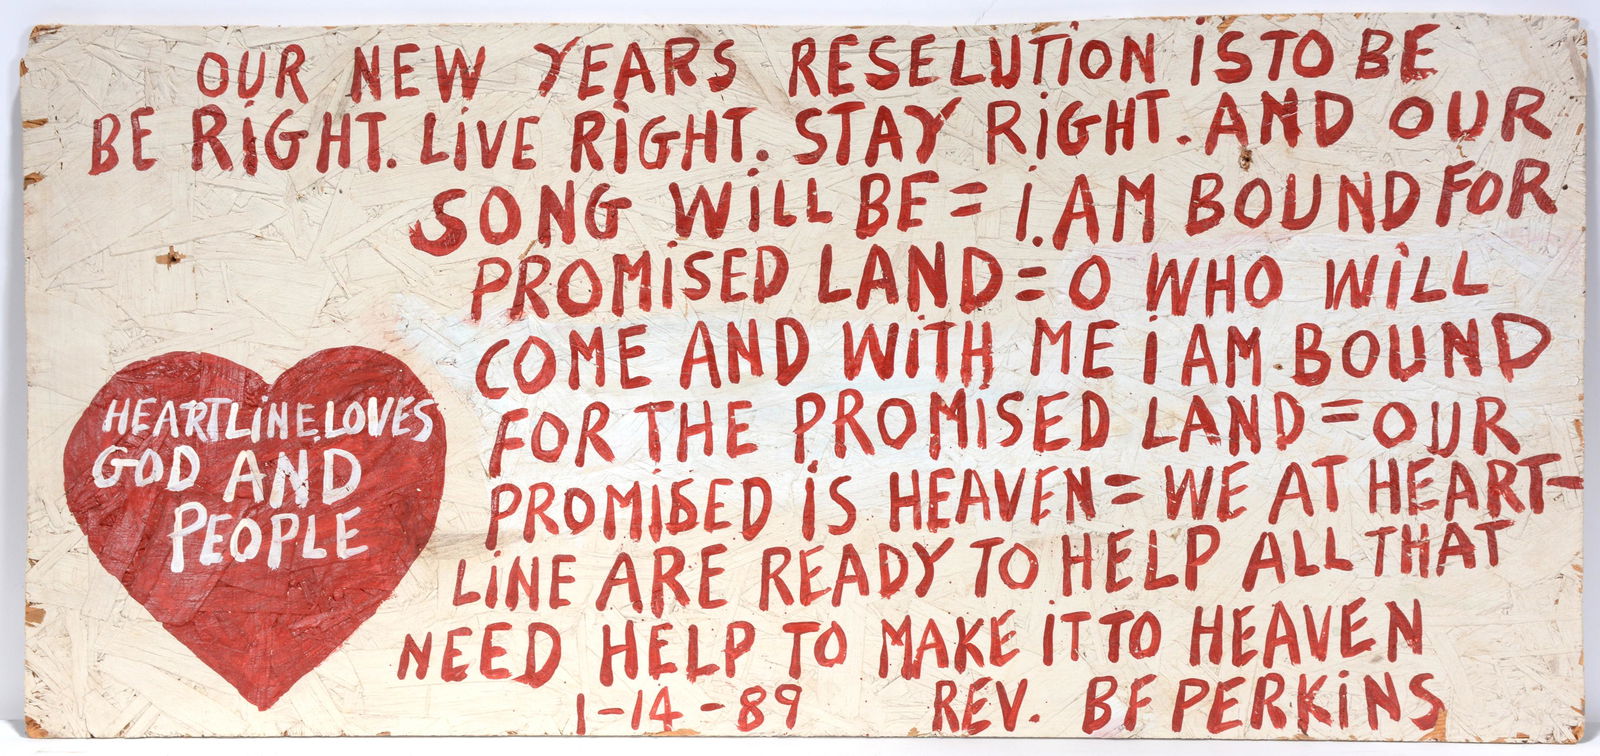 OUR NEW YEARS RESELUTiON iS TO BE
BE RiGHT. LiVE RiGHT. STAY RiGHT. AND OUR
SONG WiLL BE = i. AM BOUND FOR
PROMiSED LAND = O WHO WiLL
COME AND WiTH ME i AM BOUND
FOR THE PROMiSED LAND = OUR
PROMiSED iS HEAVEN = WE AT HEART-
LiNE ARE READY TO HELP ALL THAT
NEED HELP TO MAKE iT TO HEAVEN
1-14-89 REV. BF PERKiNS
HEARTLiNE LOVES
GOD AND
PEOPLE